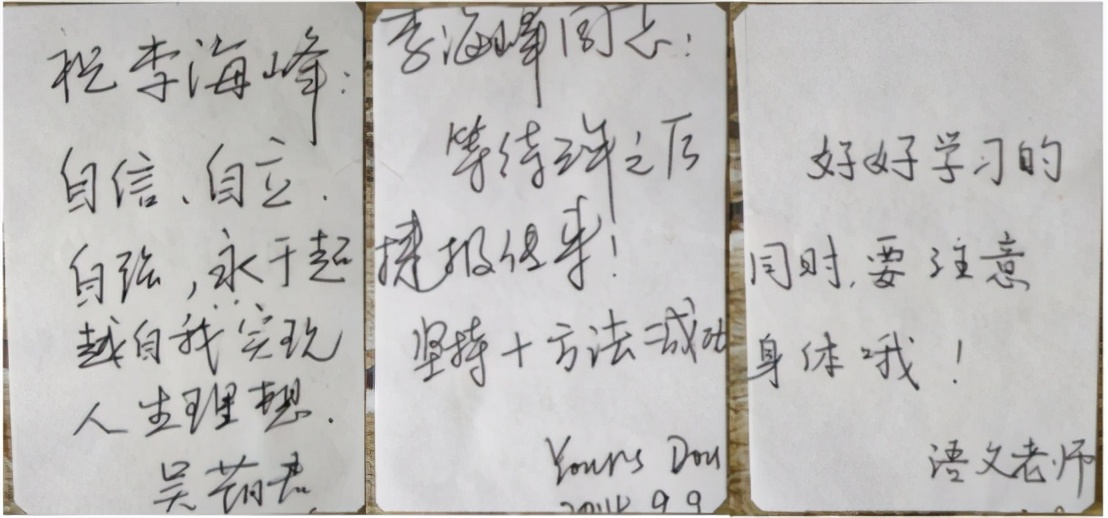 祝李海峰:
自信、自立.
自强,永于超
越自我实现
人生理想.
吴
李海峰同志:
等待三年之后
捷报传来!
坚持+方法=成功
Yours Dou
2014 9.9
好好学习的
同时,要注意
身体哦!
语文老师